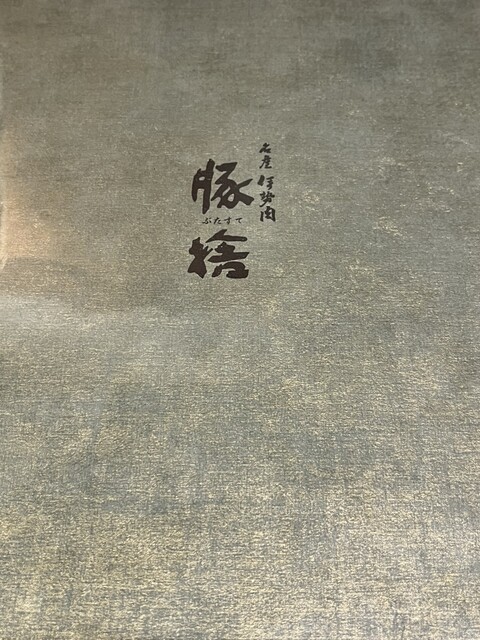 名産伊勢肉
豚捨
ぶたすて